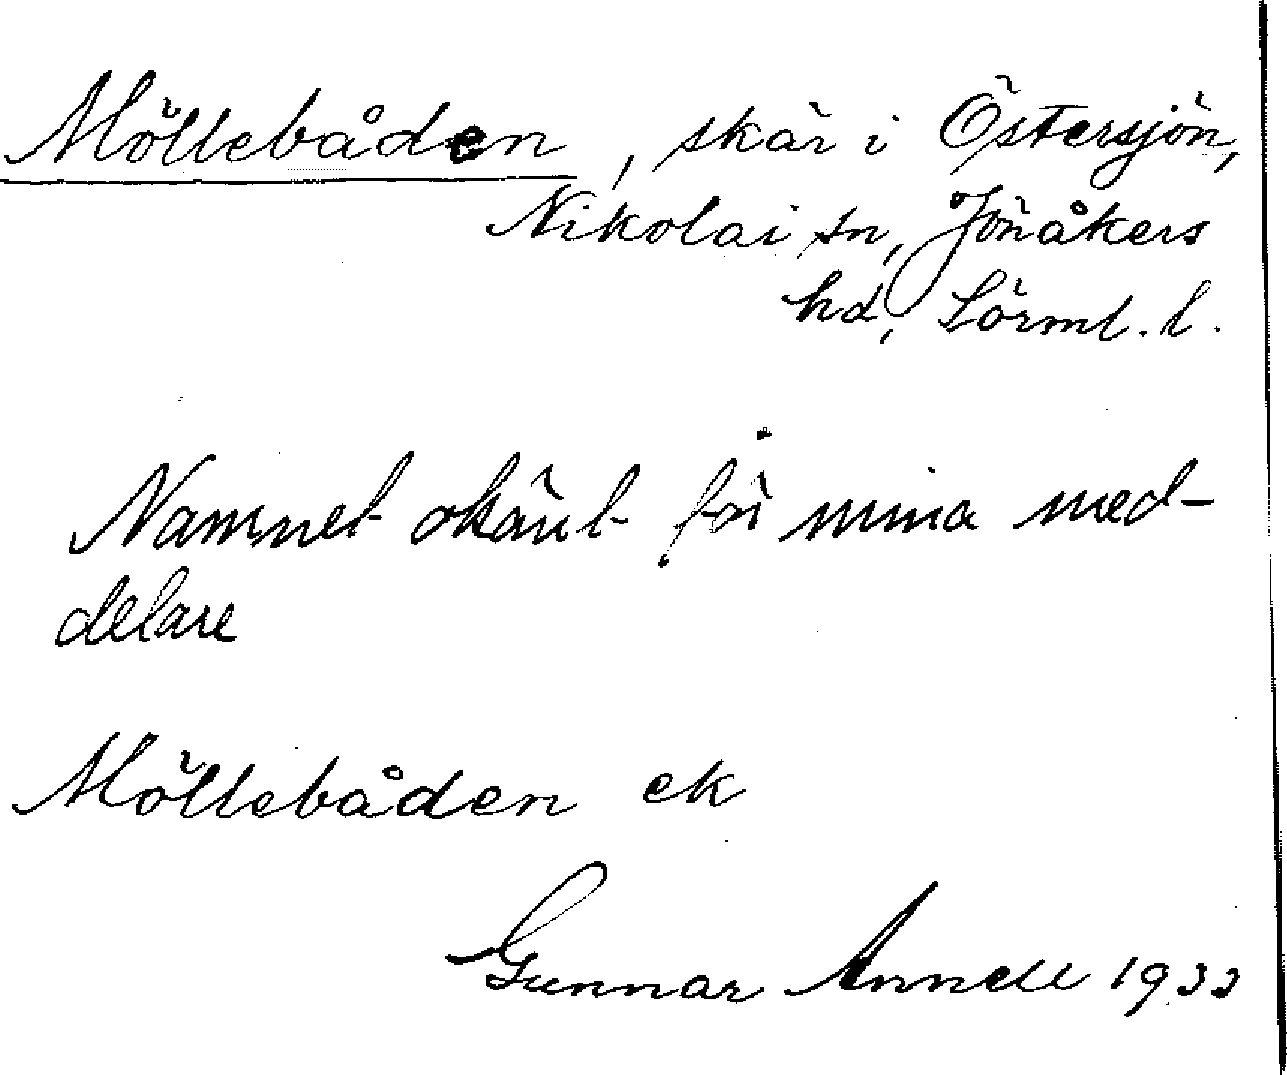 Möllebåden, skär i Östersjön,
Nikolai sn, Jönåkers
hd, Sörml. l.
Namnet okänt för mina med-
delare
Möllebåden ek
Gunnar Annell 1933